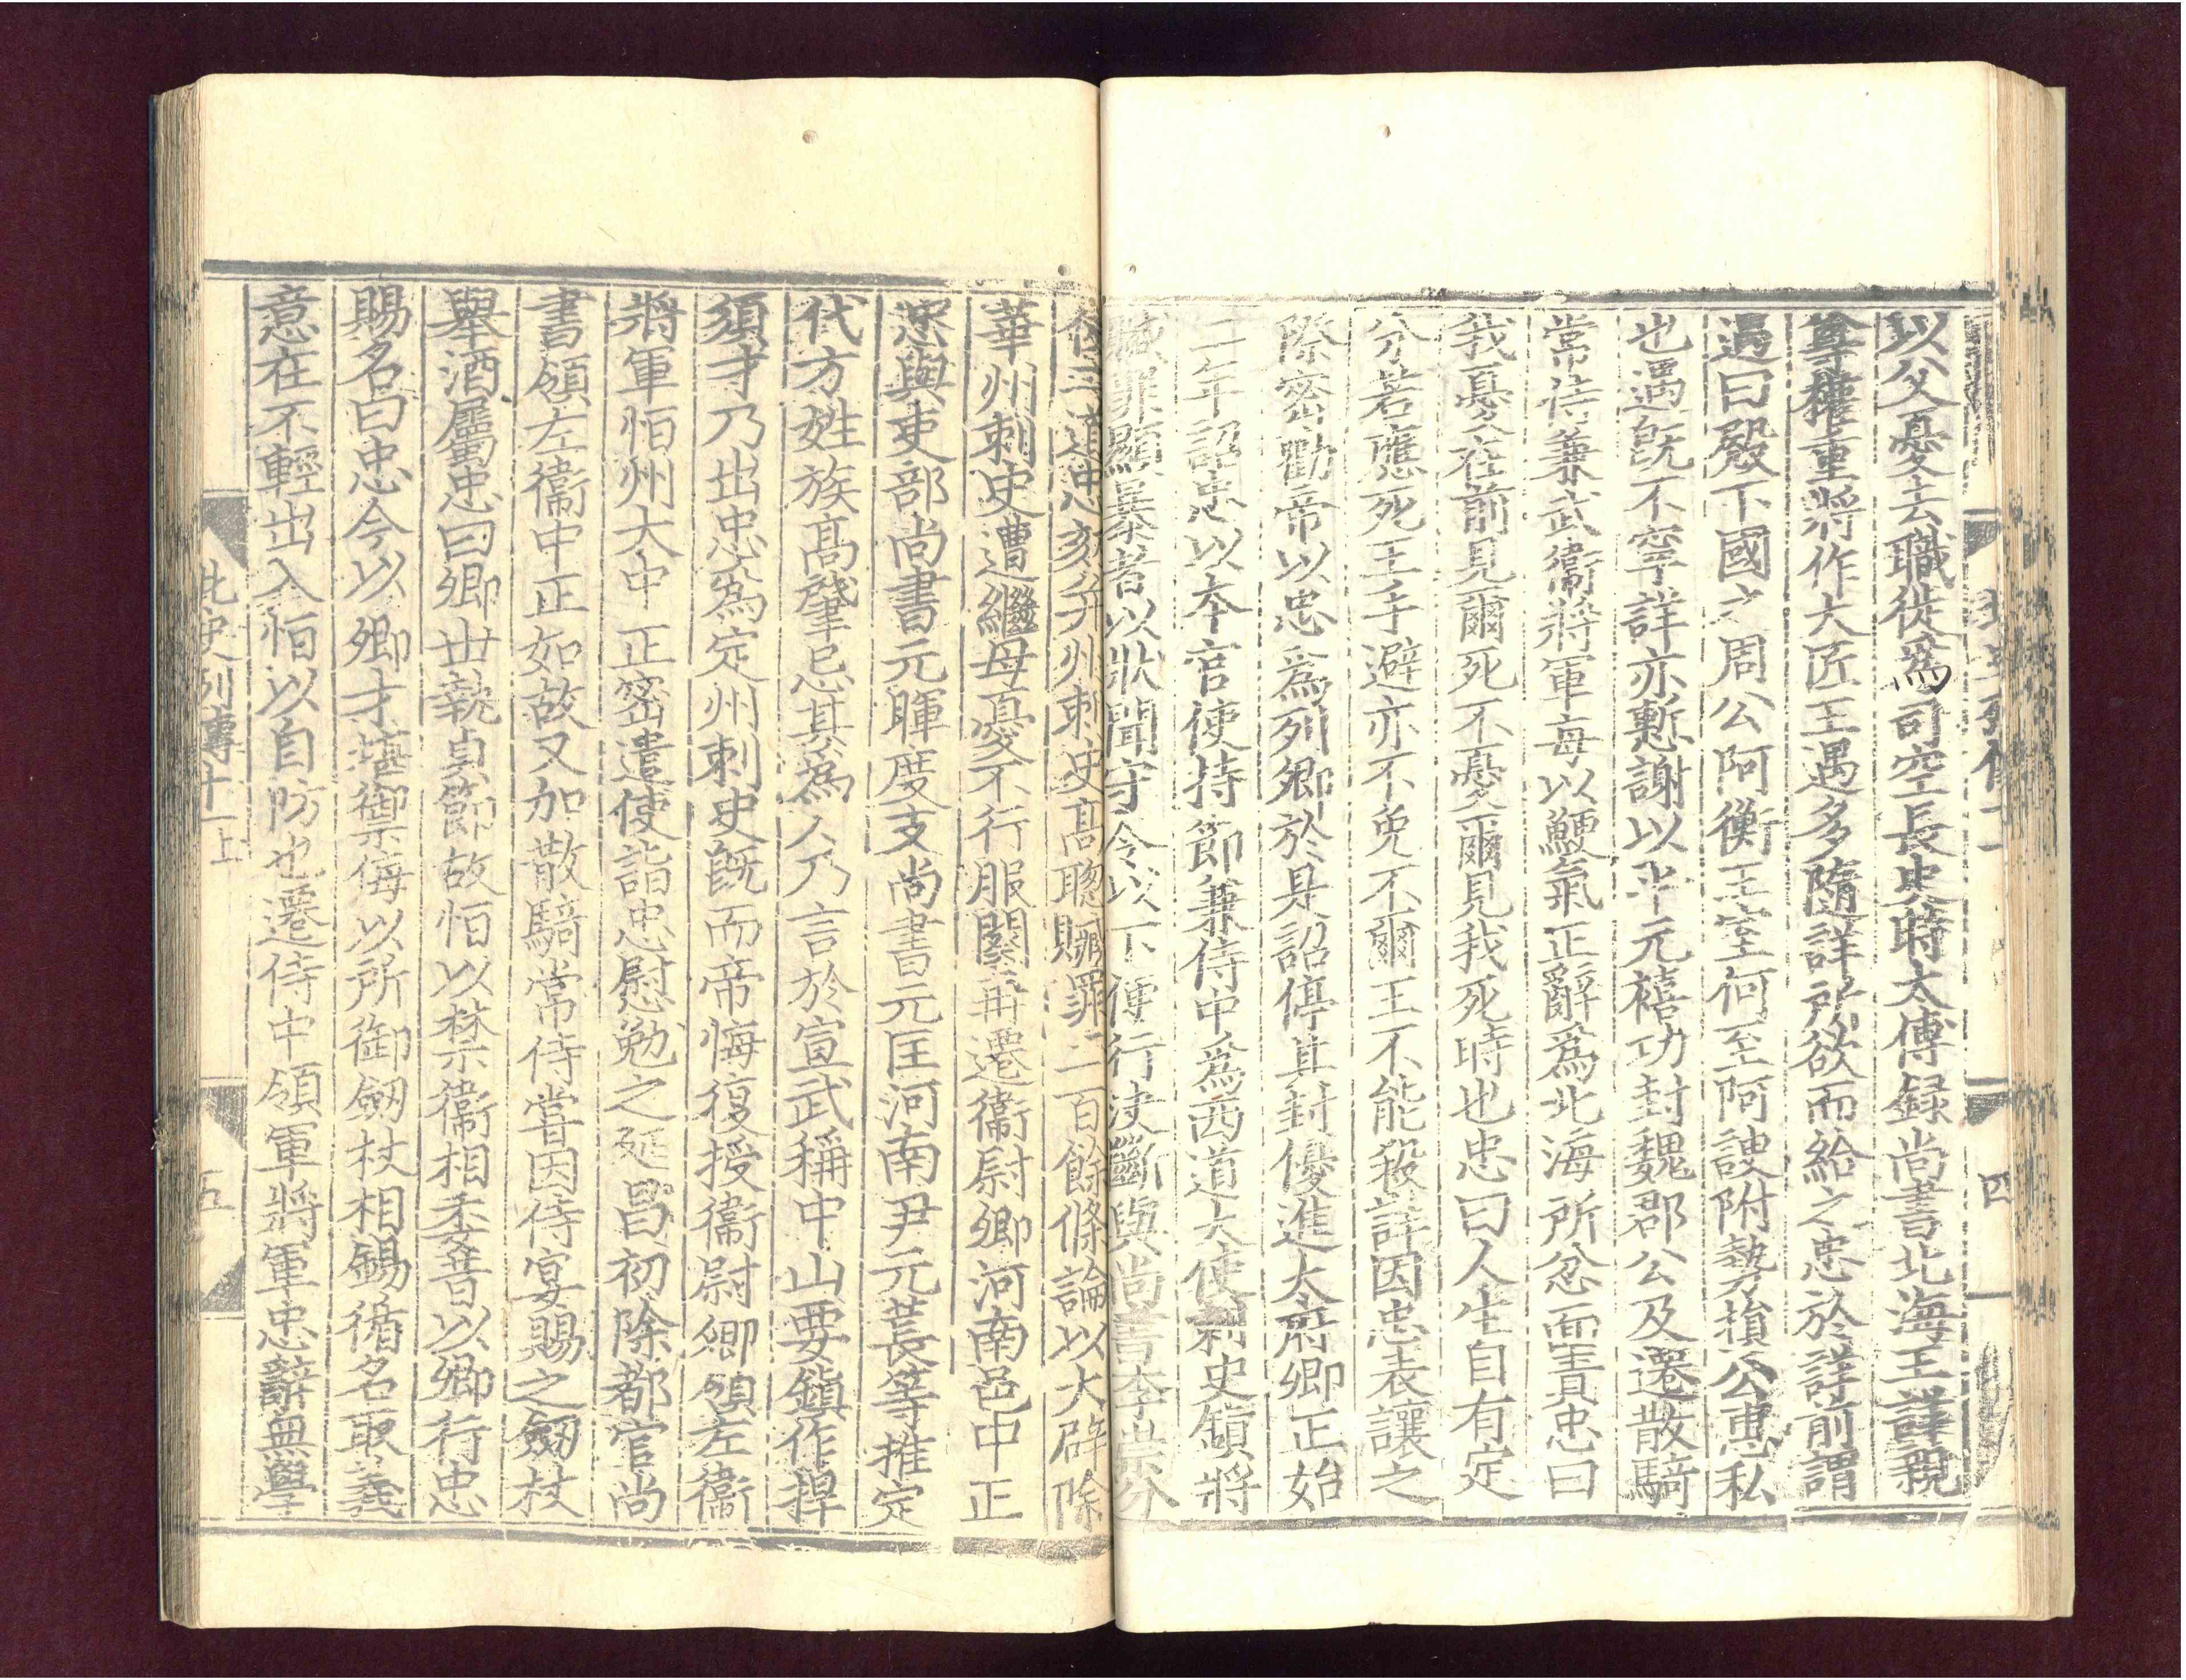 以父憂去職從爲司空長史時太傅録尚書北海王詳親
尊權重將作大匠王遇多隨詳所欲而給之忠於詳前謂
遇曰殿下國之周公阿衡王室何至阿諛附勢損公惠私
也遇旣不寧詳亦慙謝以平元禧功封魏郡公及遷散騎
常侍兼武衞將軍每以鯁氣正辭爲北海所忿面責忠曰
我憂在前見爾死不憂爾見我死時也忠曰人生自有定
分若應死王手避亦不免不爾王不能殺詳因忠表讓之
際密勸帝以忠爲列卿於是詔停其封優進太府卿正始
二年詔忠以本官使持節兼侍中爲西道大使刺史鎮將
贓罪顯暴者以狀聞守令以下便行決斷與尚書李崇分
使二道忠劾并州刺史髙聦贓罪二百餘條論以大辟除
華州刺史遭繼母憂不行服闋再遷衞尉卿河南邑中正
忠與吏部尚書元暉度支尚書元匡河南尹元萇等推定
代方姓族髙肇忌其為人乃言於宣武稱中山要鎮作捍
須才乃出忠為定州刺史旣而帝悔復授衞尉卿領左衞
將軍恒州大中正密遣使詣忠慰勉之延昌初除都官尚
書領左衞中正如故又加散騎常侍嘗因侍宴賜之劒杖
舉酒屬忠曰卿丗執貞節故恒以禁衞相委昔以卿行忠
賜名曰忠今以卿才堪禦侮以所御劒杖相錫循名取義
意在不輕出入恒以自防也遷侍中領軍將軍忠辭無學
北史列傳十一上
五
四